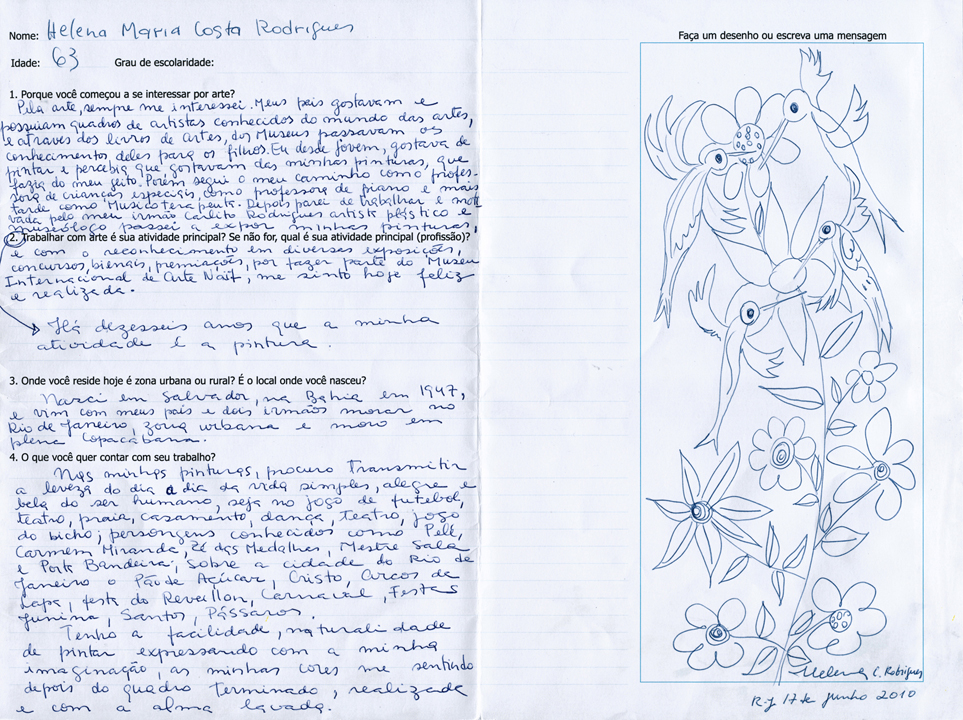 Nome: Helena Maria Costa Rodrigues
Idade: 63 Grau de escolaridade:
1. Porque você começou a se interessar por arte?
Pela arte, sempre me interessei. Meus pais gostavam e
possuiam quadros de artistas conhecidos do mundo das artes,
e através dos livros de artes, dos Museus passavam os
conhecimentos deles para os filhos. Eu desde jovem, gostava de
pintar e percebia que gostavam das minhas pinturas, que
fazia do meu jeito. Porém segui o meu caminho como profes-
sora de crianças especiais, como professora de piano e mais
tarde como Musicoterapeuta. Depois parei de trabalhar e moti
vada pelo meu irmão Carlito Rodrigues artista plástico e
museólogo passei a expor minhas pinturas,
2. Trabalhar com arte é sua atividade principal? Se não for, qual é sua atividade principal (profissão)?
e com o reconhecimento em diversas exposições,
concursos, bienais, premiações, por fazer parte do Museu
Internacional de Arte Naif, me sinto hoje feliz
e realizada.
Há dezesseis anos que a minha
atividade é a pintura.
3. Onde você reside hoje é zona urbana ou rural? É o local onde você nasceu?
Nasci em Salvador, na Bahia em 1947,
e vim com meus pais e dois irmãos morar no
Rio de Janeiro, zona urbana e moro em
plena Copacabana.
4. O que você quer contar com seu trabalho?
Nas minhas pinturas, procuro transmitir
a leveza do dia a dia da vida simples, alegre e
bela do ser humano, seja no jogo de futebol,
teatro, praia, casamento, dança, teatro, jogo
do bicho; personagens conhecidos como Pelé,
Carmem Miranda, Zé das Medalhas, Mestre Sala
e Porta Bandeira; Sobre a cidade do Rio de
Janeiro o Pão de Açúcar, Cristo, Arcos da
Lapa, festa do Reveillon, Carnaval, Festas
Junina, Santos, Pássaros.
Tenho a facilidade, naturalidade
de pintar expressando com a minha
imaginação, as minhas cores me sentindo
depois do quadro terminado, realizada
e com a alma lavada.
Faça um desenho ou escreva uma mensagem
Helena C. Rodrigues
R.J 17 de Junho 2010